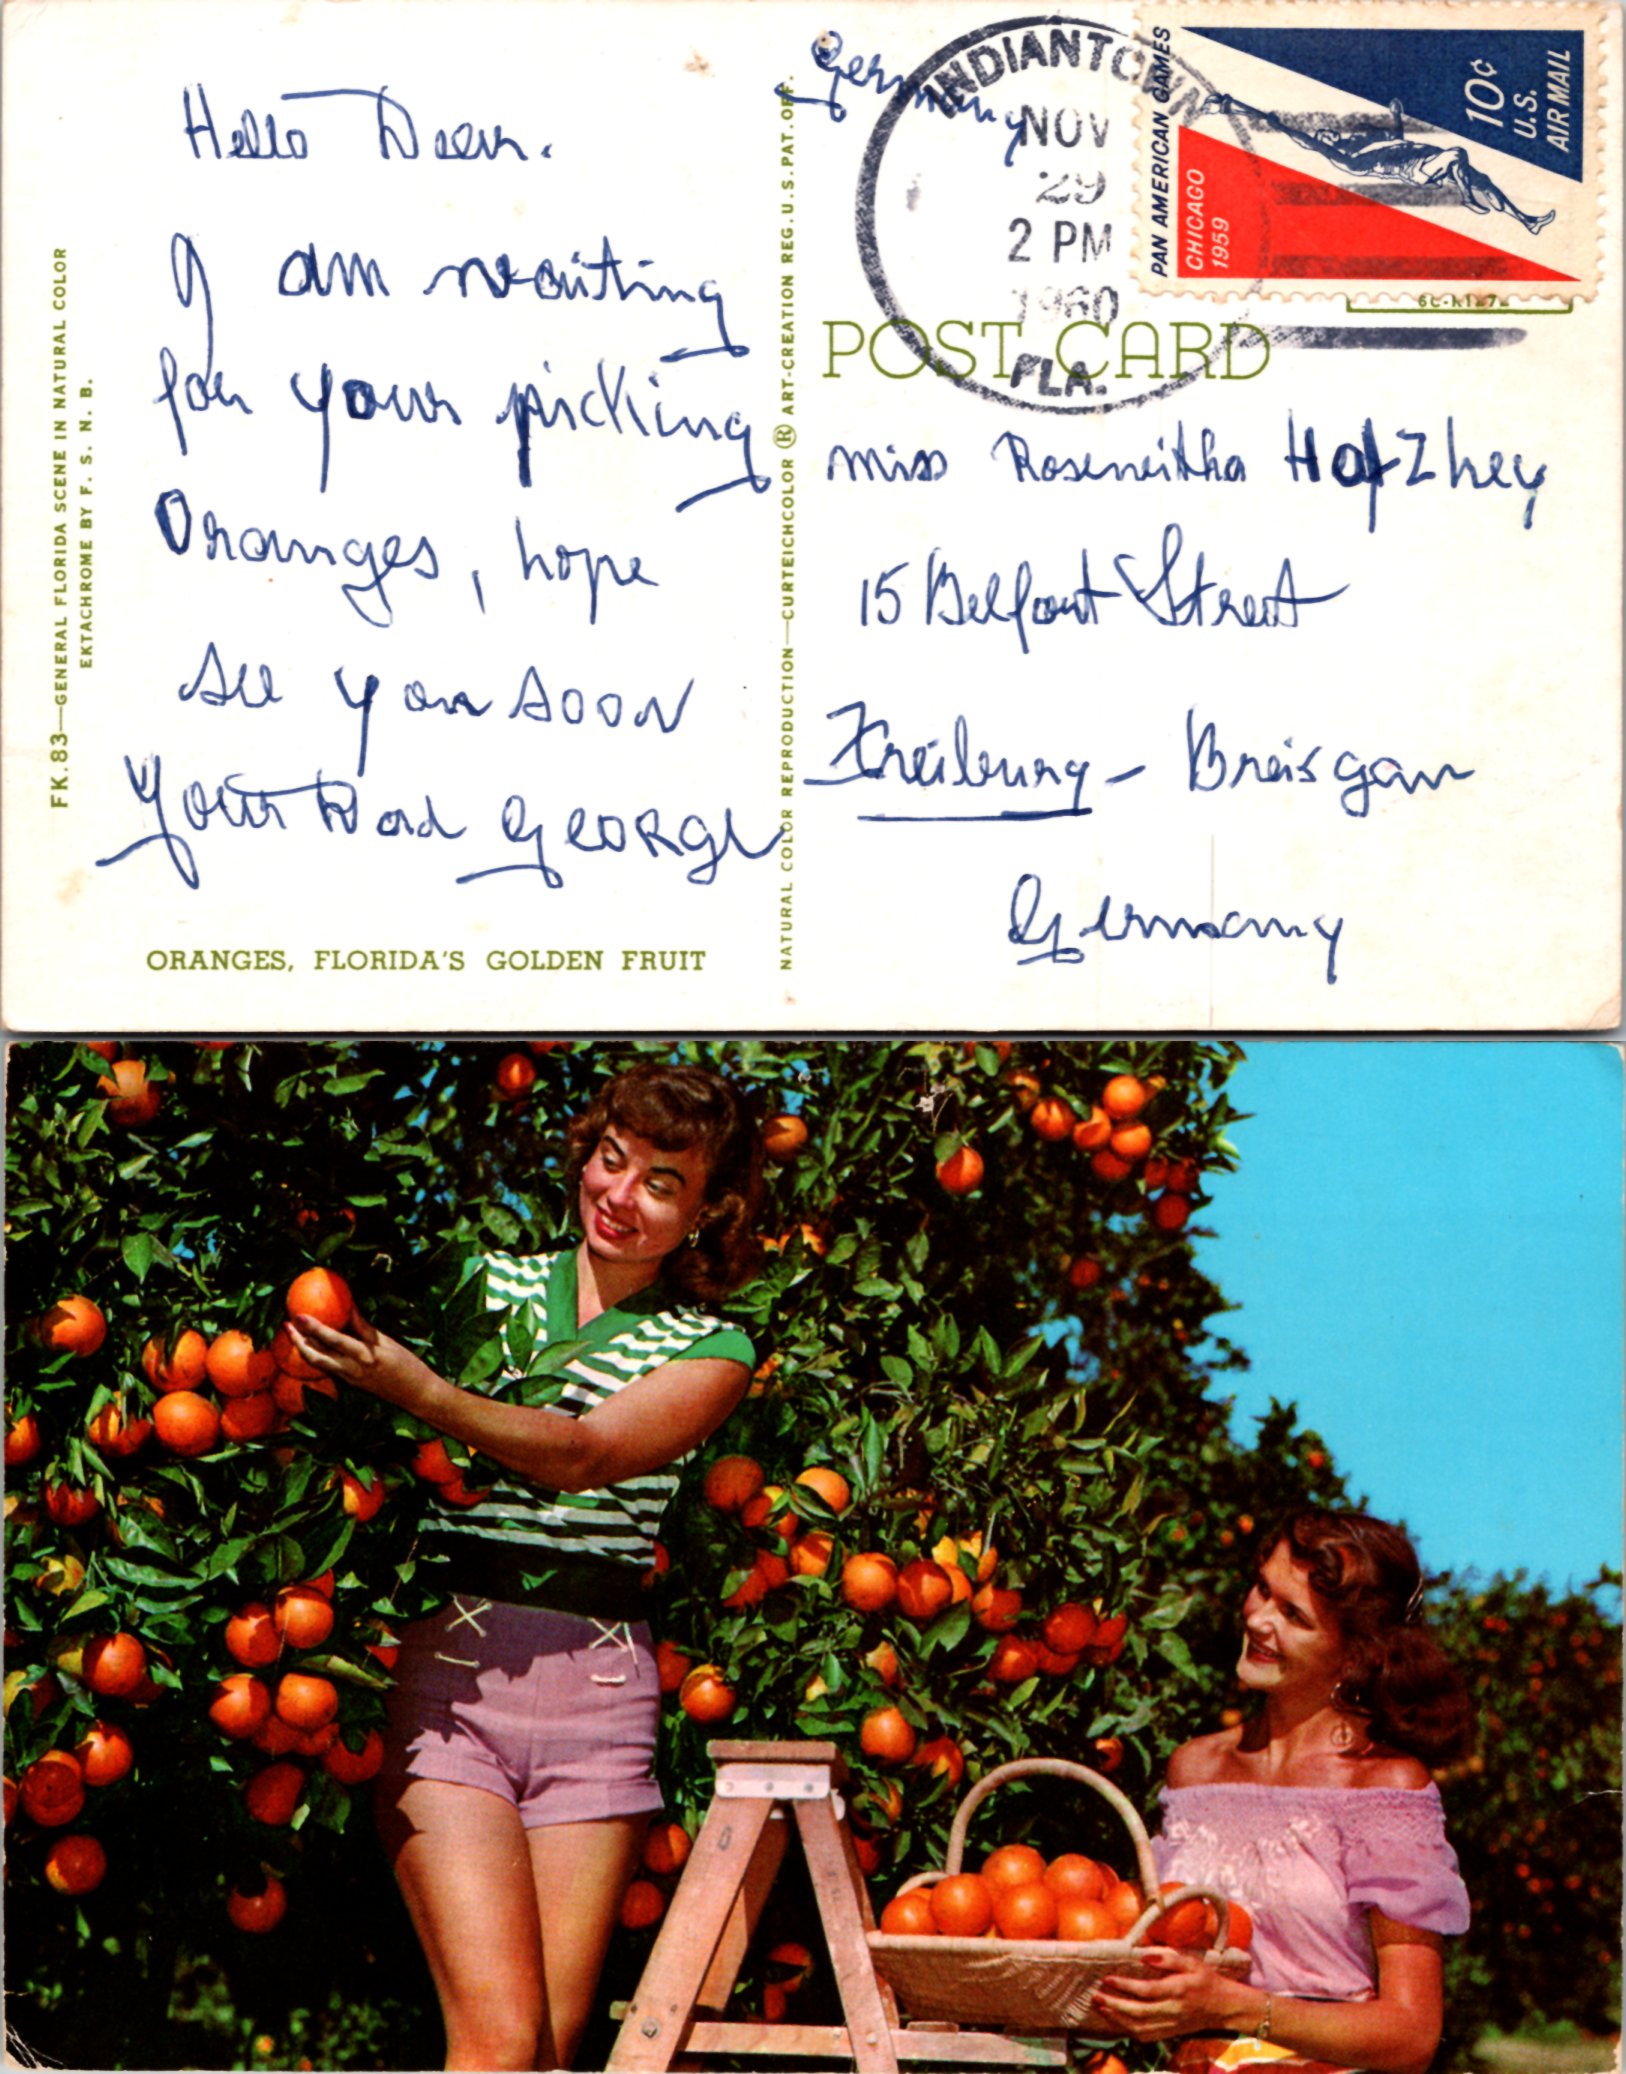 Hello Dear.
I am waiting
for your picking
Oranges, hope
see you soon
Your George
ORANGES, FLORIDA'S GOLDEN FRUIT
FK.83—GENERAL FLORIDA SCENE IN NATURAL COLOR
EKTACHROME BY F. S. N. B.
NATURAL COLOR REPRODUCTION—CURTEICHCOLOR ® ART-CREATION REG. U.S. PAT. OFF.
Germany
INDIANTOWN
NOV
29
2 PM
1960
FLA.
PAN AMERICAN GAMES
CHICAGO
1959
10¢
U.S.
AIR MAIL
POST CARD
miss
15 Belfort Street
Freiburg - Breisgau
Germany